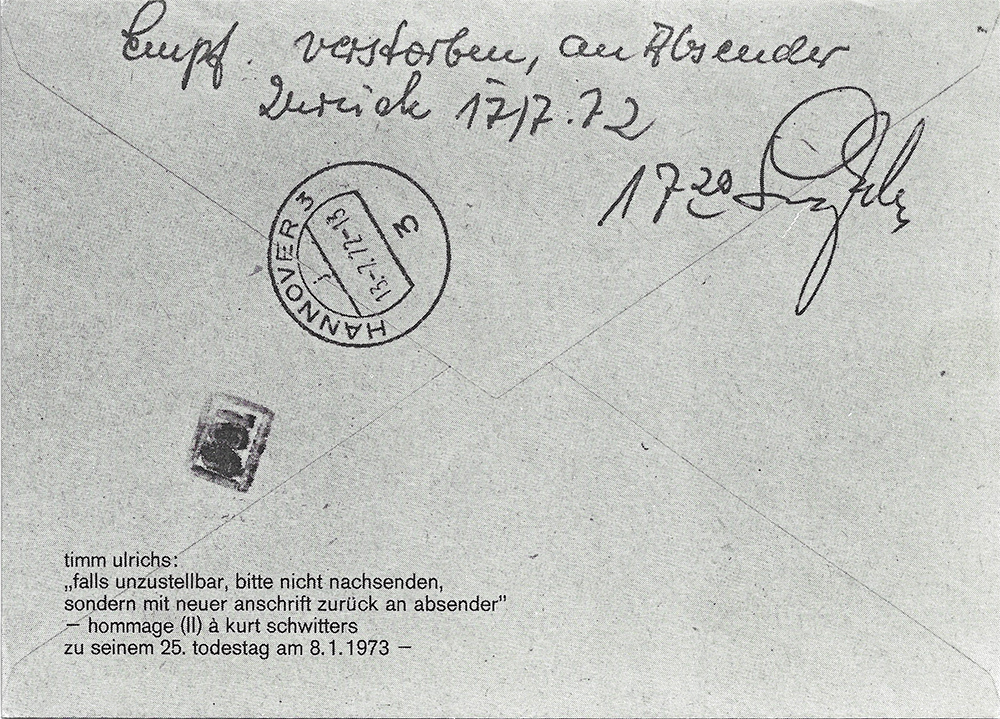 Empf. verstorben, an Absender
Zurück 17/7.72
17 20
HANNOVER 3
13.-7.72-13
3
timm ulrichs:
„falls unzustellbar, bitte nicht nachsenden,
sondern mit neuer anschrift zurück an absender”
— hommage (II) à kurt schwitters
zu seinem 25. todestag am 8.1.1973 —